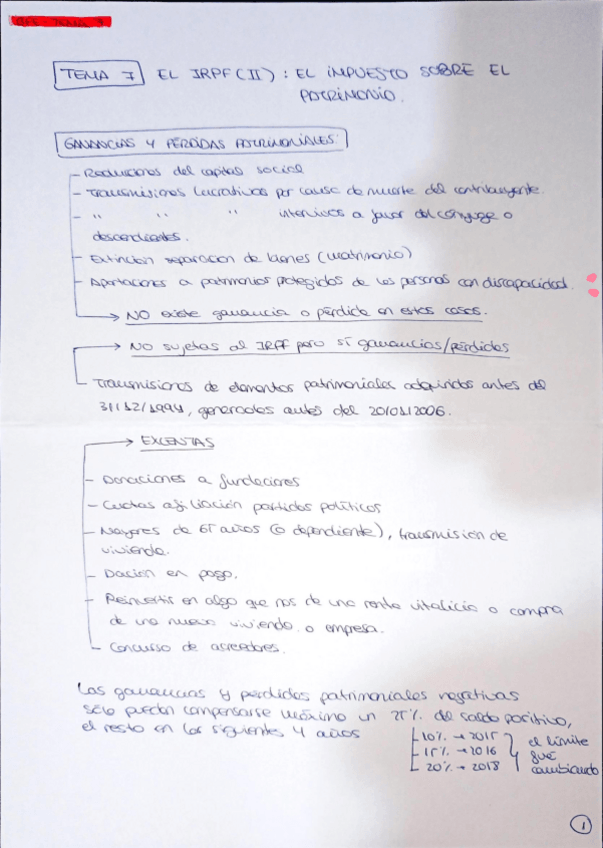 TEMA 7 EL IRPF (II) : EL IMPUESTO SOBRE EL
PATRIMONIO.
GANANCIAS Y PÉRDIDAS PATRIMONIALES:
- Reducciones del capital social
- Transmisiones lucrativas por causa de muerte del contribuyente.
- " " " intervivos a favor del cónyuge o
descendientes.
- Extinción separación de bienes (matrimonio)
- Aportaciones a patrimonios protegidos de las personas con discapacidad.
→ NO existe ganancia o pérdida en estos casos.
→ NO sujetas al IRPF pero sí ganancias/pérdidas
Transmisiones de elementos patrimoniales adquiridos antes del
31/12/1994, generados antes del 20/01/2006.
→ EXENTAS
- Donaciones a fundaciones
- Cuotas afiliación partidos políticos
- Mayores de 65 años (o dependiente), transmisión de
vivienda.
- Dación en pago.
- Reinvertir en algo que nos de una renta vitalicia o compra
de una nueva vivienda o empresa.
- Concurso de acreedores.
Las ganancias y perdidas patrimoniales negativas
sólo pueden compensarse máximo un 25% del saldo positivo,
el resto en los siguientes 4 años
10% → 2015
15% → 2016
20% → 2018
el límite
fué
cambiando
1